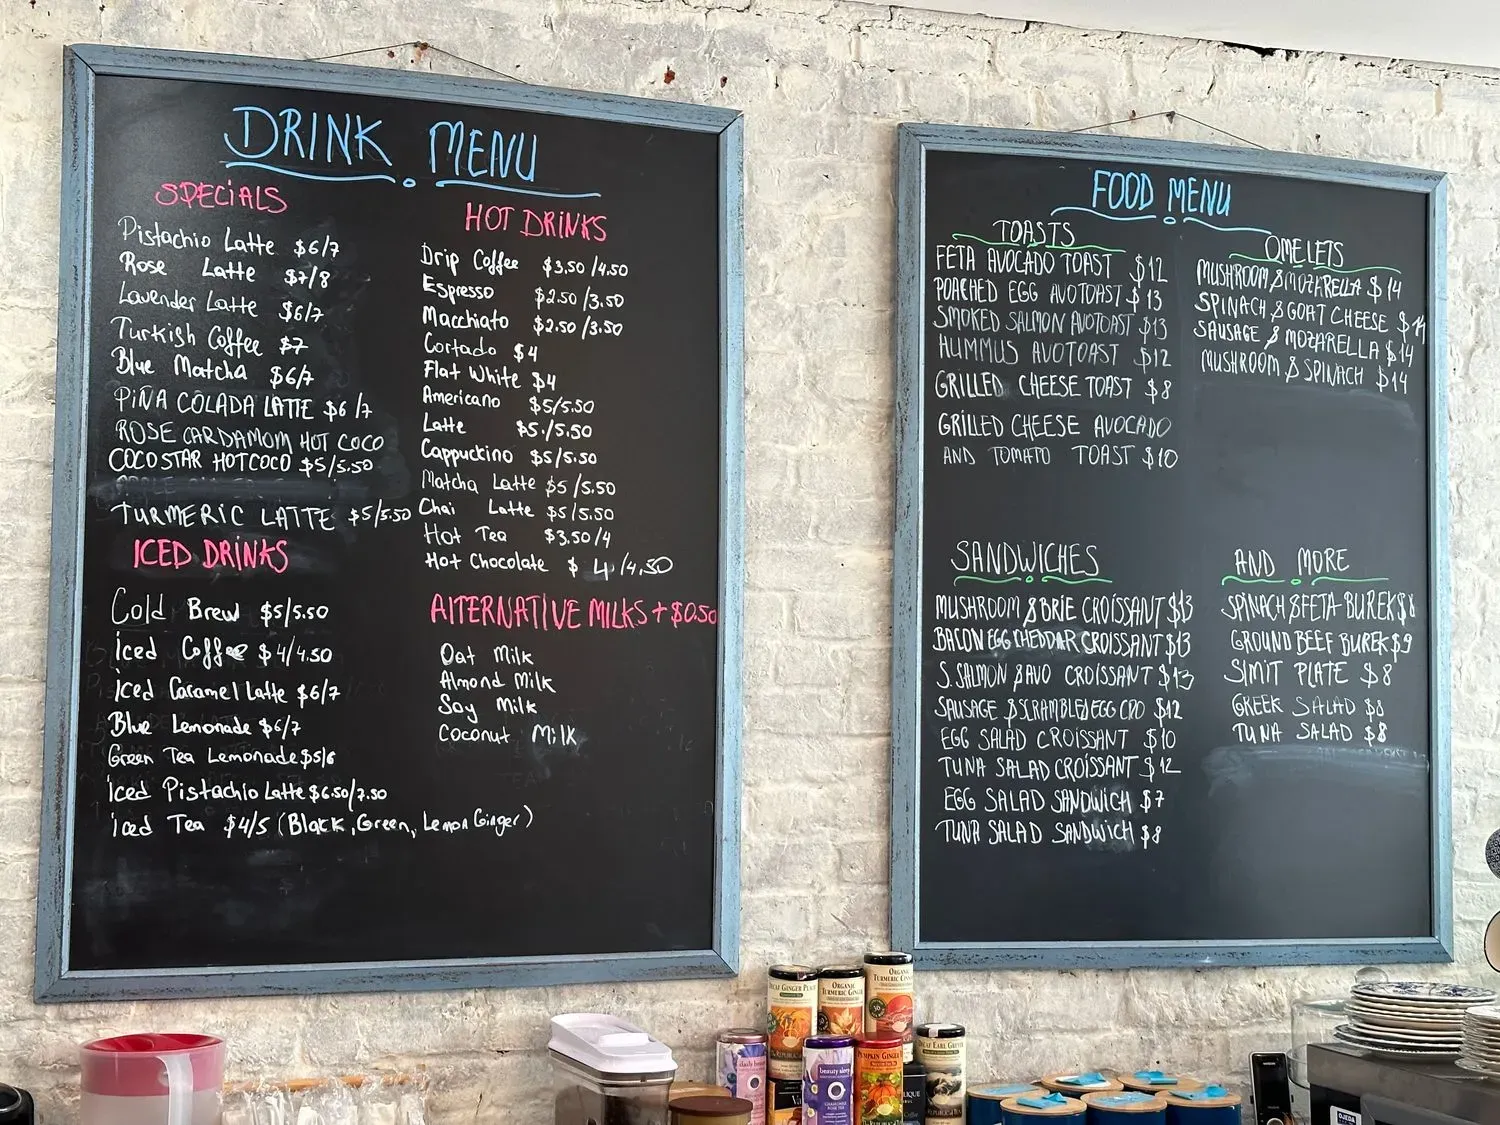 DRINK MENU
SPECiALS
Pistachio Latte $6/7
Rose Latte $7/8
Lavender Latte $6/7
Turkish Coffee $7
Blue Matcha $6/7
PiÑA COLADA LATTE $6/7
ROSE CARDAMOM HOT COCO
COCOSTAR HOTCOCO $5/5.50
TURMERIC LATTE $5/5.50
ICED DRiNKS
Cold Brew $5/5.50
Iced Coffee $4/4.50
iced Caramel Latte $6/7
Blue Lemonade $6/7
Green Tea Lemonade $5/6
iced Pistachio Latte $6.50/7.50
iced Tea $4/5 (Black, Green, Lemon Ginger)
HOT DRiNKS
Drip Coffee $3.50/4.50
Espresso $2.50/3.50
Macchiato $2.50/3.50
Cortado $4
Flat White $4
Americano $5/5.50
Latte $5./5.50
Cappuccino $5/5.50
Matcha Latte $5/5.50
Chai Latte $5/5.50
Hot Tea $3.50/4
Hot Chocolate $ 4/4.50
AlTERNATiVE MILKS + $0.50
Oat Milk
Almond Milk
Soy Milk
Coconut Milk
FOOD MENU
TOASTS
FETA AVOCADO TOAST $12
POACHED EGG AVOTOAST $13
SMOKED SALMON AVOTOAST $13
HUMMUS AVOTOAST $12
GRILLED CHEESE TOAST $8
GRILLED CHEESE AVOCADO
AND TOMATO TOAST $10
OMELETS
MUSHROOM & MOZARELLA $14
SPINACH & GOAT CHEESE $14
SAUSAGE & MOZARELLA $14
MUSHROOM & SPINACH $14
SANDWICHES
MUSHROOM & BRIE CROISSANT $13
BACON EGG CHEDDAR CROISSANT $13
S.SALMON & AVO CROISSANT $13
SAUSAGE & SCRAMBLED EGG CRO $12
EGG SALAD CROISSANT $10
TUNA SALAD CROISSANT $12
EGG SALAD SANDWICH $7
TUNA SALAD SANDWICH $8
AND MORE
SPINACH & FETA BUREK $8
GROUND BEEF BUREK $9
SIMIT PLATE $8
GREEK SALAD $8
TUNA SALAD $8
ORGANIC
TURMERIC GINGER
ORGANIC
TURMERIC
DECAF EARL GREY
beauty sleep
PUMPKIN GINGER
OJEDA